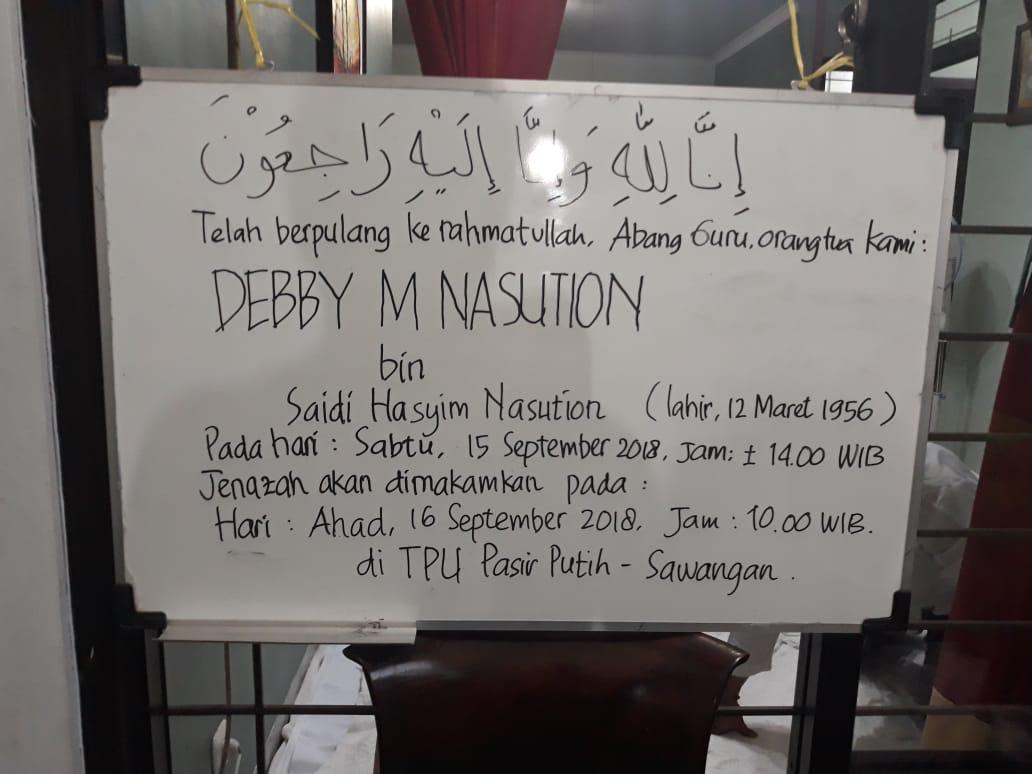 إِنَّا لِلّٰهِ وَإِنَّا إِلَيْهِ رَاجِعُوْنَ
Telah berpulang ke rahmatullah, Abang Guru, orangtua kami :
DEBBY M NASUTION
bin
Saidi Hasyim Nasution (lahir, 12 Maret 1956)
Pada hari : Sabtu, 15 September 2018, Jam: ± 14.00 WIB
Jenazah akan dimakamkan pada :
Hari : Ahad, 16 September 2018, Jam : 10.00 WIB.
di TPU Pasir Putih - Sawangan.